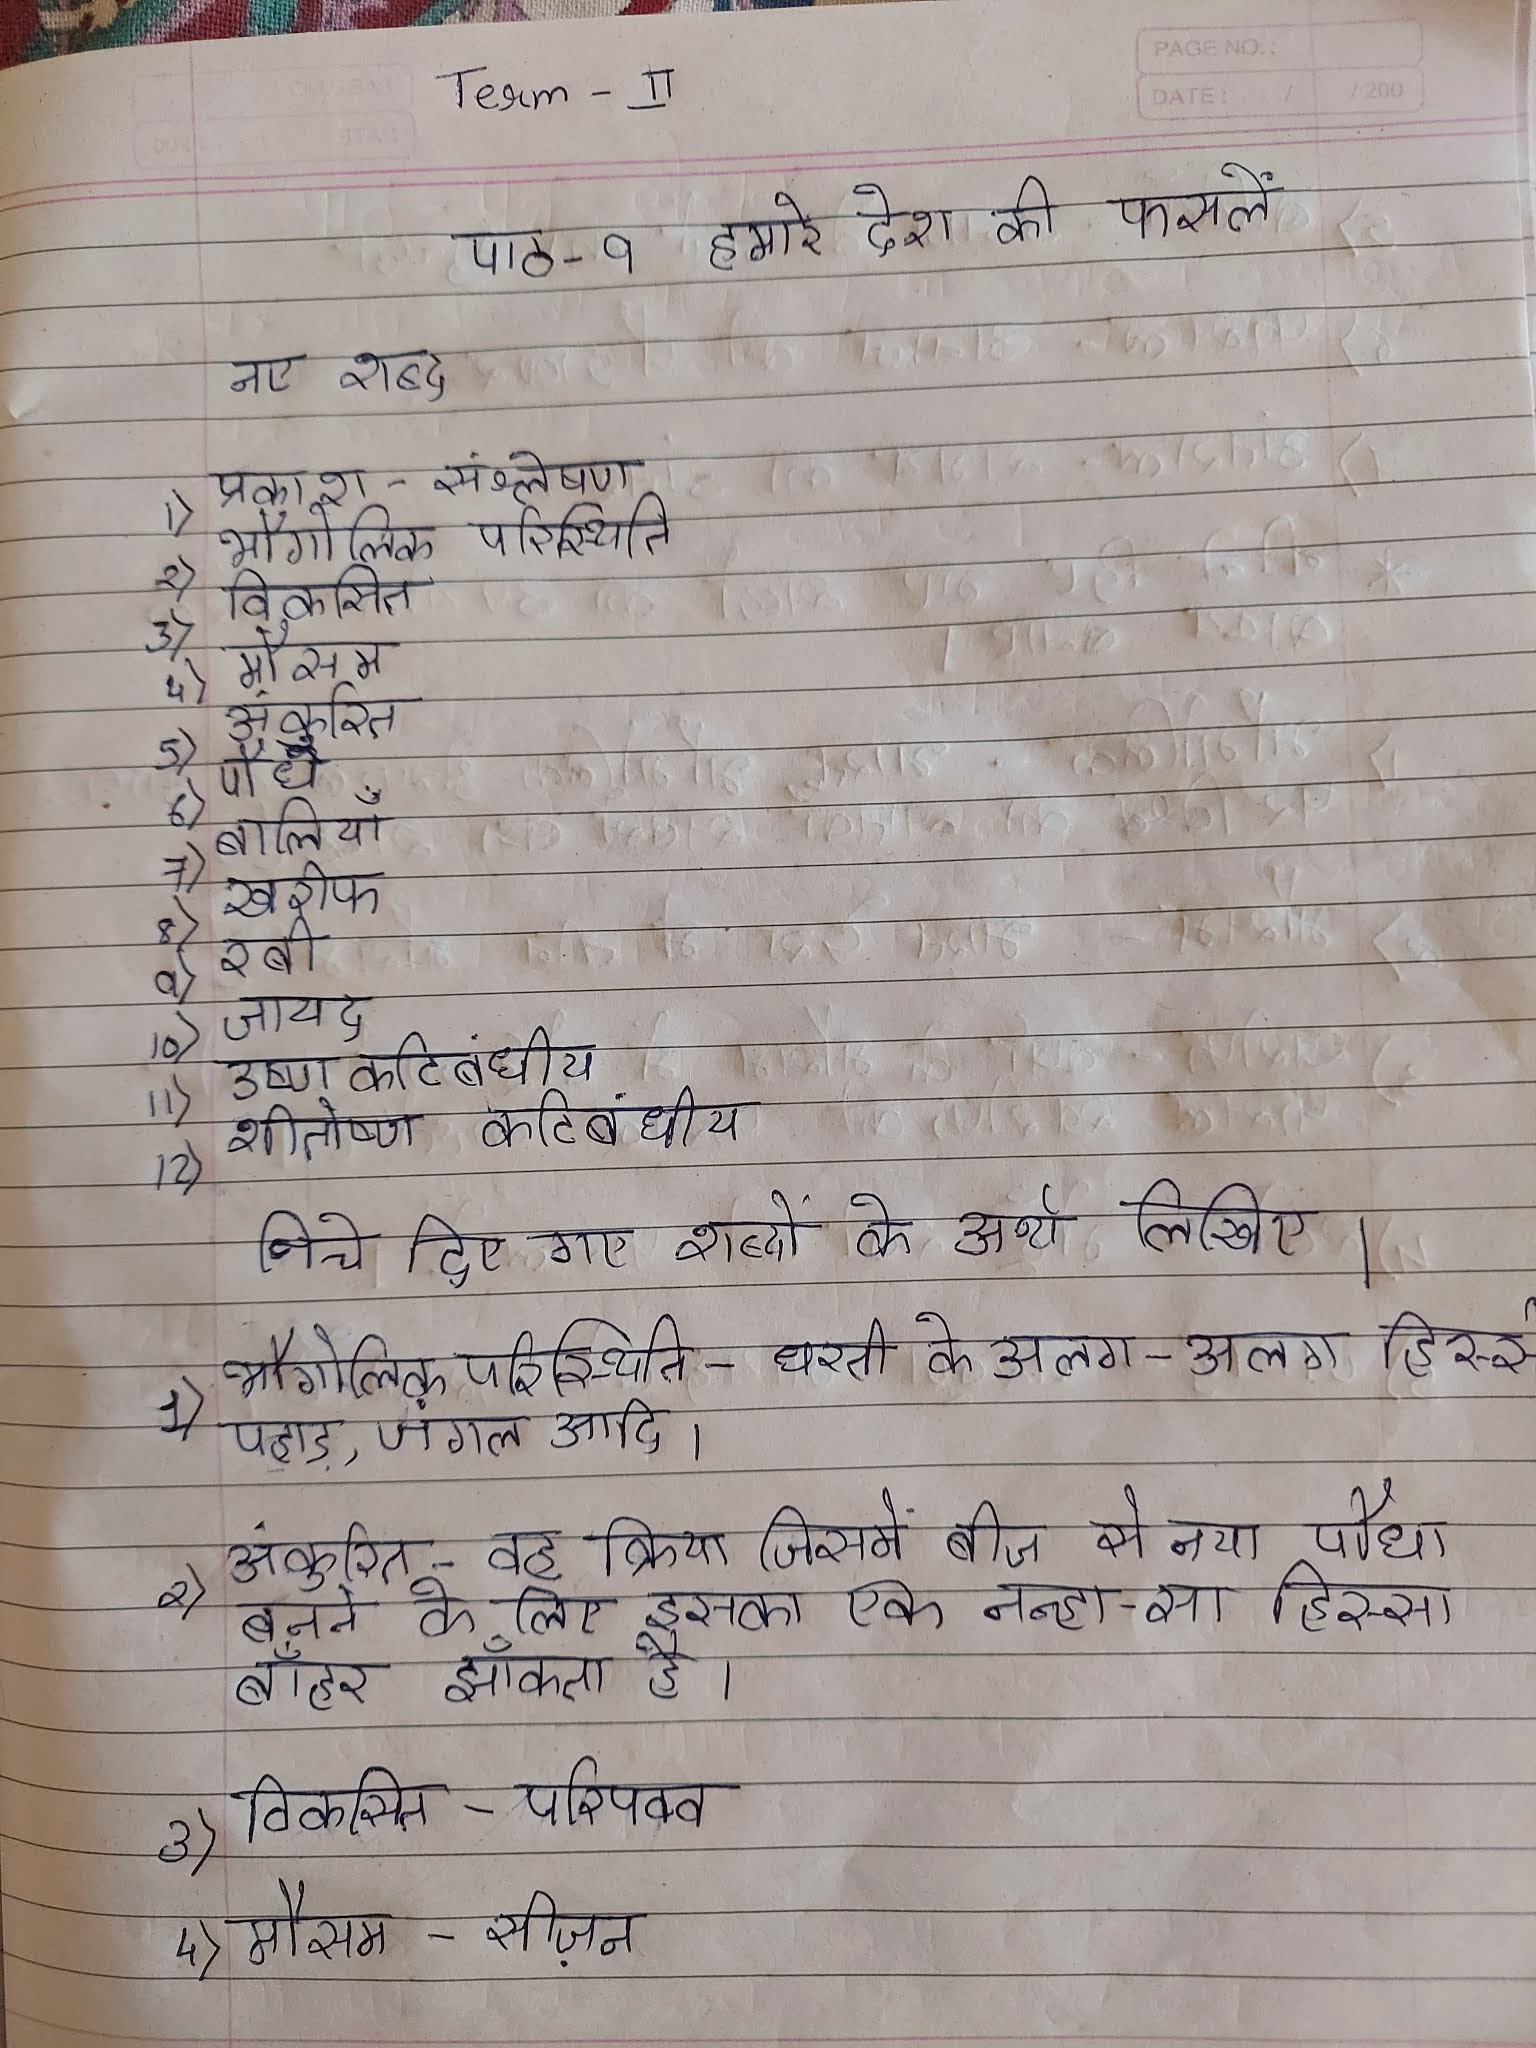 PAGE NO.:
DATE: / /200
Term - II
पाठ-१ हमारे देश की फसलें
नए शब्द
1) प्रकाश - संश्लेषण
2) भौगोलिक परिस्थिति
3) विकसित
4) मौसम
5) अंकुरित
6) पौधे
7) बालियाँ
8) खरीफ
9) रबी
10) जायद
11) उष्ण कटिबंधीय
12) शीतोष्ण कटिबंधीय
निचे दिए गए शब्दों के अर्थ लिखिए ।
1) भौगोलिक परिस्थिति - धरती के अलग - अलग हिस्से
पहाड़, जंगल आदि ।
2) अंकुरित - वह क्रिया जिसमें बीज से नया पौधा
बनने के लिए इसका एक नन्हा-सा हिस्सा
बाँहर झाँकता है ।
3) विकसित - परिपक्व
4) मौसम - सीज़न